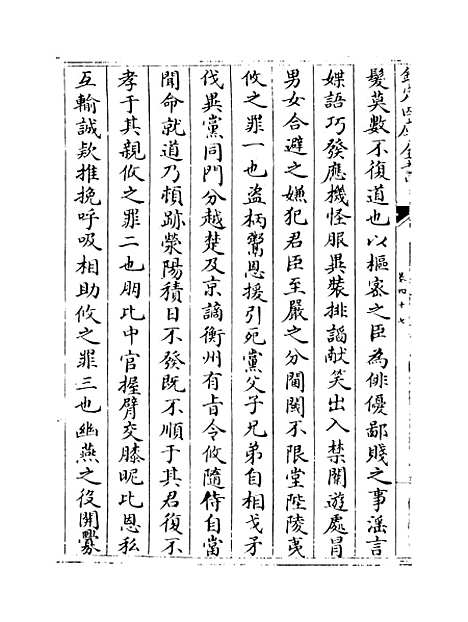 欽定四庫全書
卷四十七
髮莫數不復道也以樞密之臣為俳優鄙賤之事滛言
媟語巧發應機怪服異裝排謟献笑出入禁闗遊處冒
男女合避之嫌犯君臣至嚴之分閫闑不限堂陛陵夷
攸之罪一也盗柄鬻恩援引死黨父子兄弟自相戈矛
伐異黨同門分越楚及京謫衡州有㫖令攸隨侍自當
聞命就道乃頓跡滎陽積日不發既不順于其君復不
孝于其親攸之罪二也朋比中官握臂交膝昵比恩私
互輸誠欵推挽呼吸相助攸之罪三也幽燕之役開釁